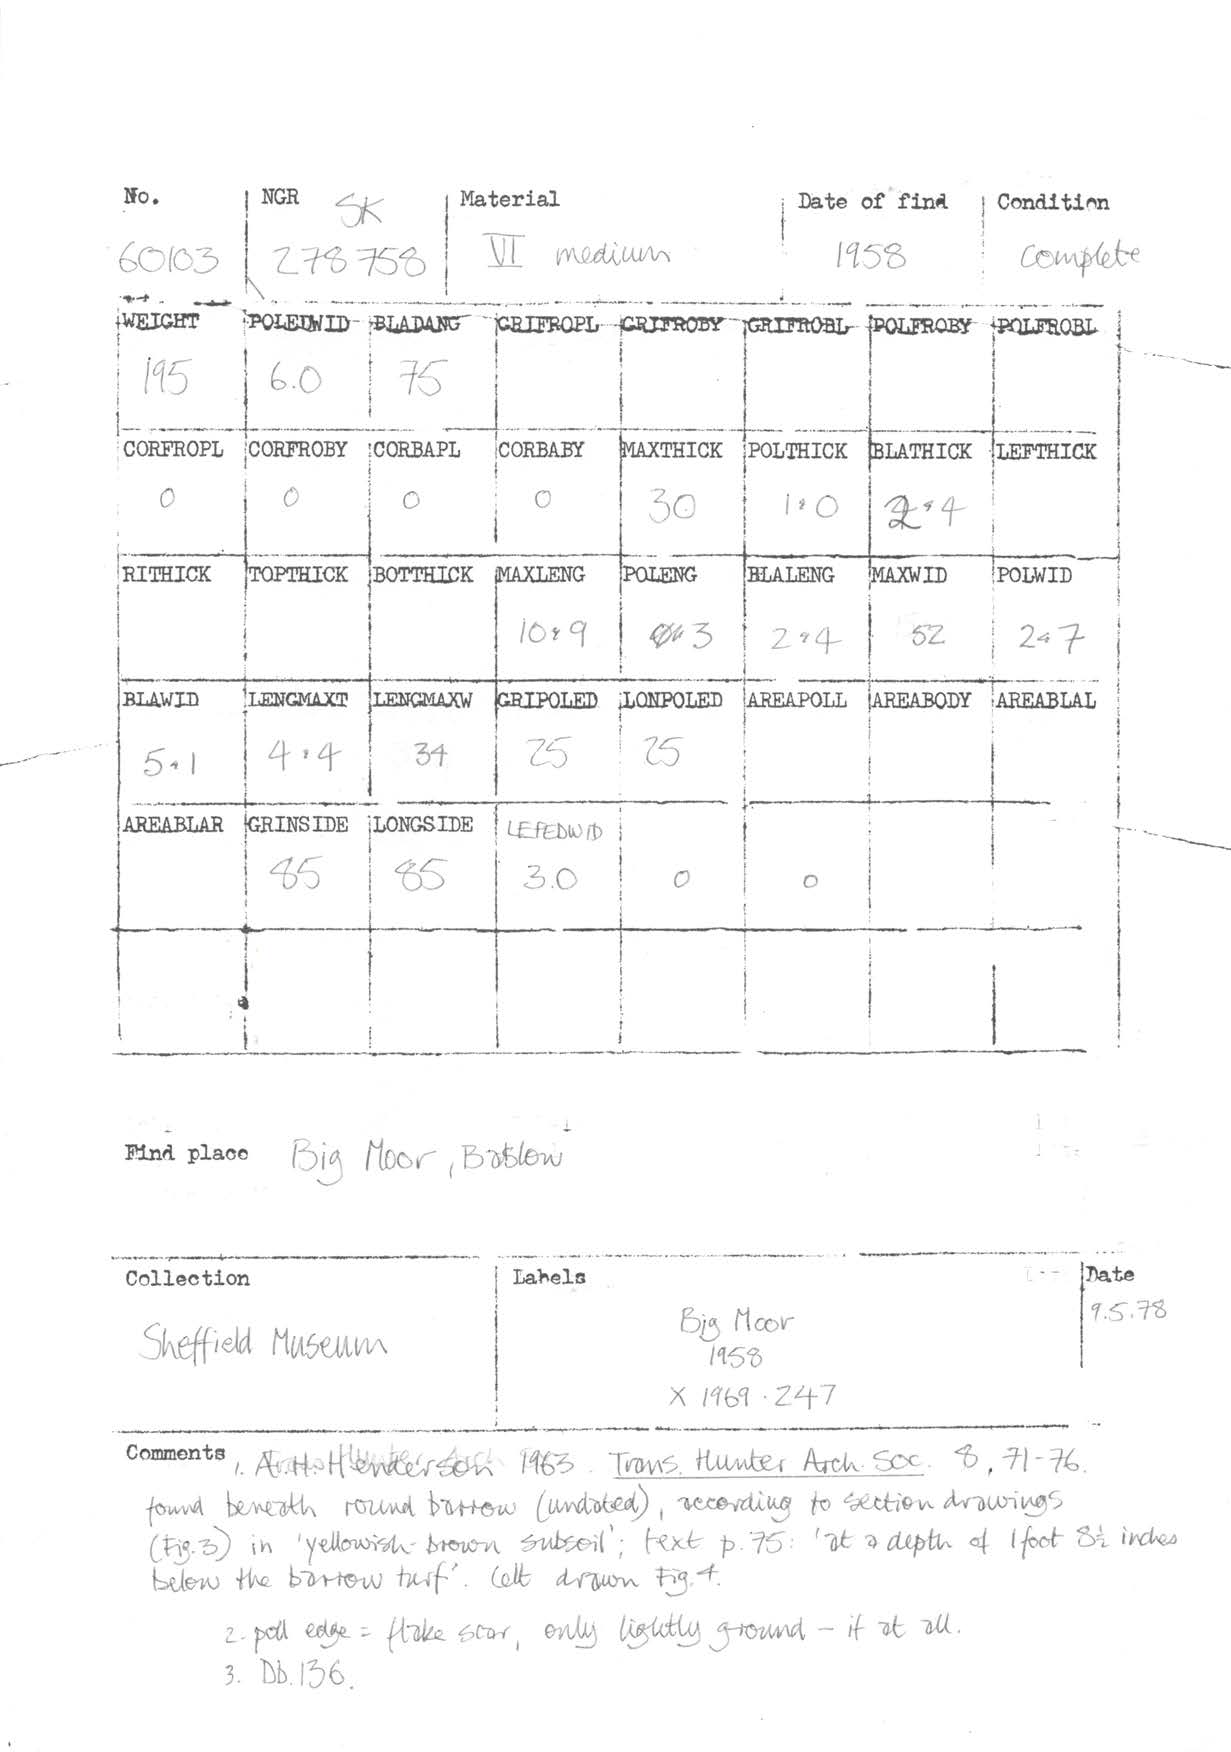 No. NGR SK Material Date of find Condition
60103 278 758 VI medium 1958 complete
WEIGHT POLEDWID BLADANG GRIFROPL GRIFROBY GRIFROBL POLFROBY POLFROBL
195 6.0 75
CORFROPL CORFROBY CORBAPL CORBABY MAXTHICK POLTHICK BLATHICK LEFTHICK
0 0 0 0 30 1.0 2.4
RITHICK TOPTHICK BOTTHICK MAXLENG POLENG BLALENG MAXWID POLWID
10.9 3 2.4 52 2.7
BLAWID LENGMAXT LENGMAXW GRIPOLED LONPOLED AREAPOLL AREABODY AREABLAL
5.1 4.4 34 25 25
AREABLAR GRINSIDE LONGSIDE LEFEDWID
85 85 3.0 0 0
Find place Big Moor, Baslow
Collection Labels Date
Sheffield Museum Big Moor 9.5.78
1958
X 1969.247
Comments 1. A.H. Henderson 1963. Trans. Hunter Arch. Soc. 8, 71-76.
found beneath round barrow (undated), according to section drawings
(Fig.3) in 'yellowish-brown subsoil'; text p.75: 'at a depth of 1 foot 8½ inches
below the barrow turf'. Celt drawn Fig.4.
2. poll edge = flake scar, only lightly ground – if at all.
3. Db.136.